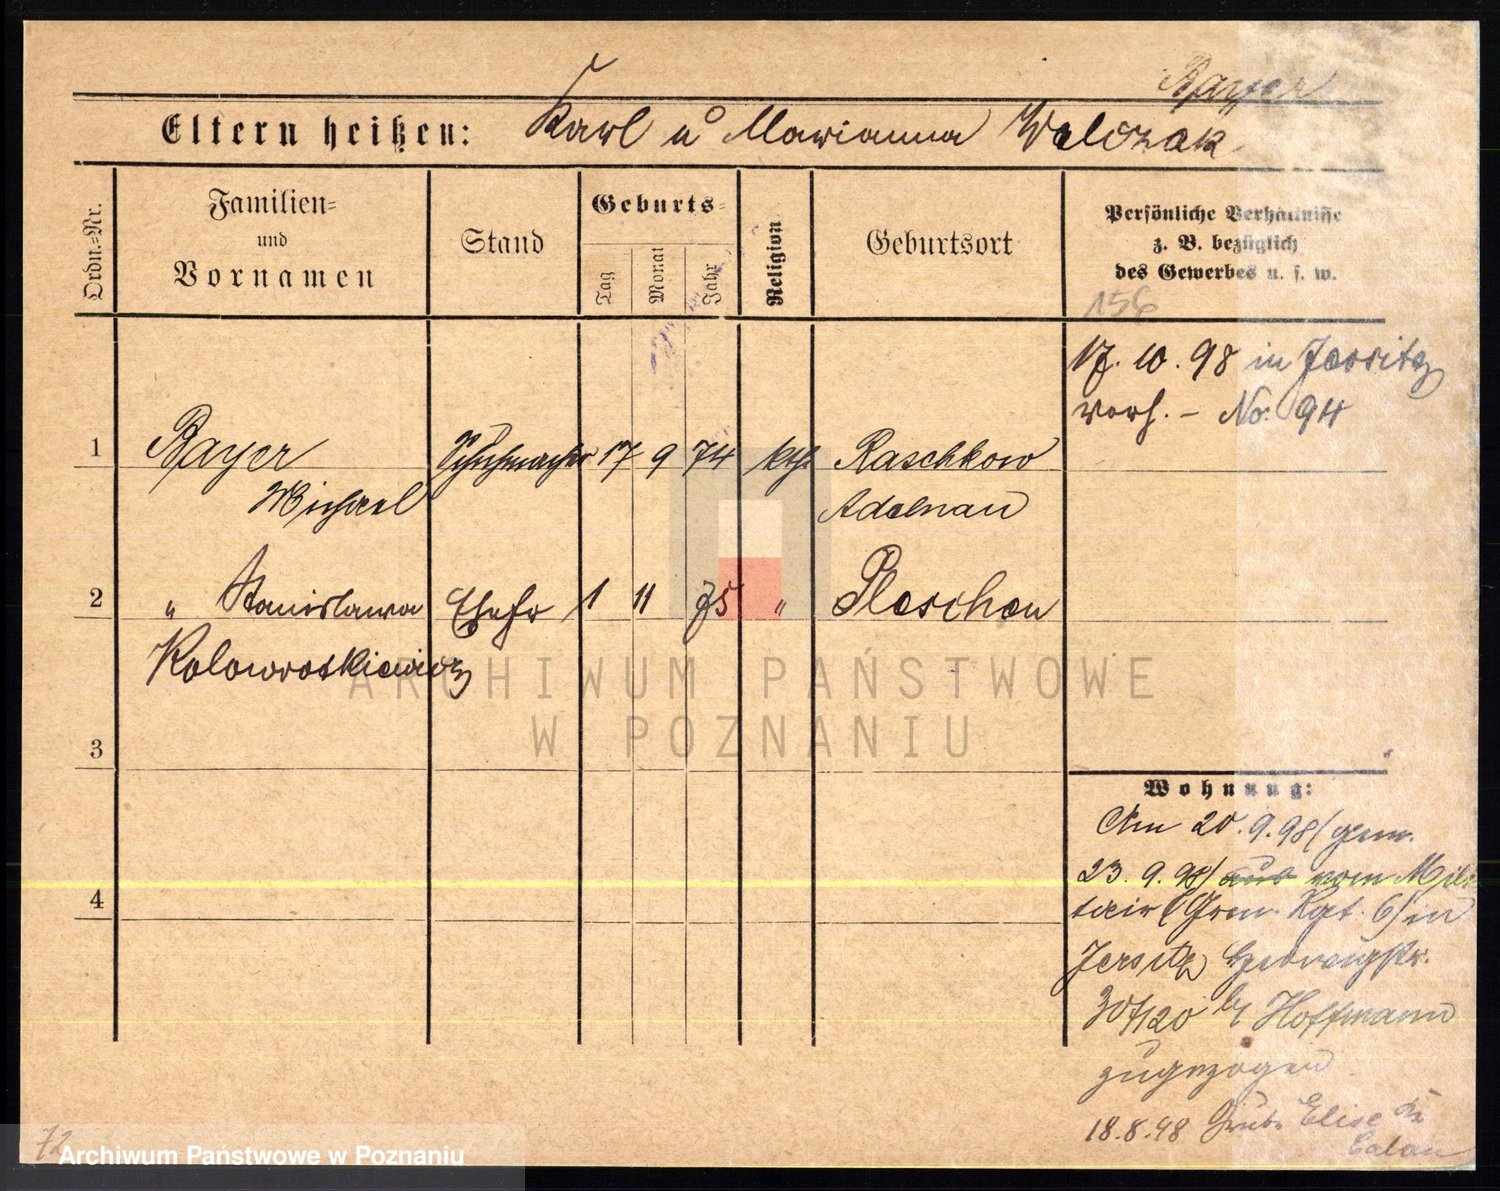 Bayer
Eltern heißen: Karl u Marianna Walczak
Ordn.=Nr.
Familien=
und
Vornamen
Stand
Geburts=
Tag
Monat
Jahr
Religion
Geburtsort
Persönliche Verhältnisse
z. B. bezüglich
des Gewerbes u. s. w.
156
17. 10. 98 in Jersitz
verh. - No. 94
1 Bayer Schuhmacher 17 9 74 kth Raschkow
Michael Adelnau
2 " Stanislawa Ehefr 1 11 75 " Pleschen
Kolowroskiewicz
3
4
Wohnung:
Am 20. 9. 98 (gem.
23. 9. 98) aus vom Mili
tair (Gren. Rgt. 6) in
Jersitz Hedwigstr.
b/ Hoffmann
zugezogen
18.8.98 Elise
Calau
72
ARCHIWUM PAŃSTWOWE
W POZNANIU
Archiwum Państwowe w Poznaniu